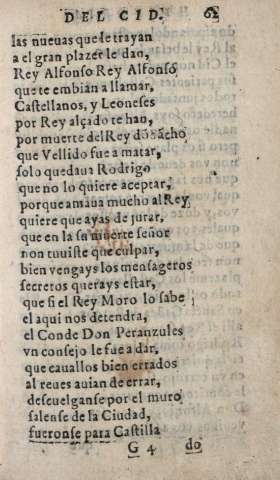 DEL CID. 62
las nueuas que le trayan
a el gran plazer le dan,
Rey Alfonso Rey Alfonso
que te embian a llamar,
Castellanos, y Leoneses
por Rey alçado te han,
por muerte del Rey dõ Sãcho
que Vellido fue a matar,
solo quedaua Rodrigo
que no lo quiere aceptar,
porque amaua mucho al Rey
quiere que ayas de jurar,
que en la su muerte señor
non tuuiste que culpar,
bien vengays los mensageros
secretos querays estar,
que si el Rey Moro lo sabe
el aqui nos detendra,
el Conde Don Peranzules
vn consejo le fue a dar,
que cauallos bien errados
al reues auian de errar,
descuelganse por el muro
salense de la Ciudad,
fueronse para Castilla
G 4 do